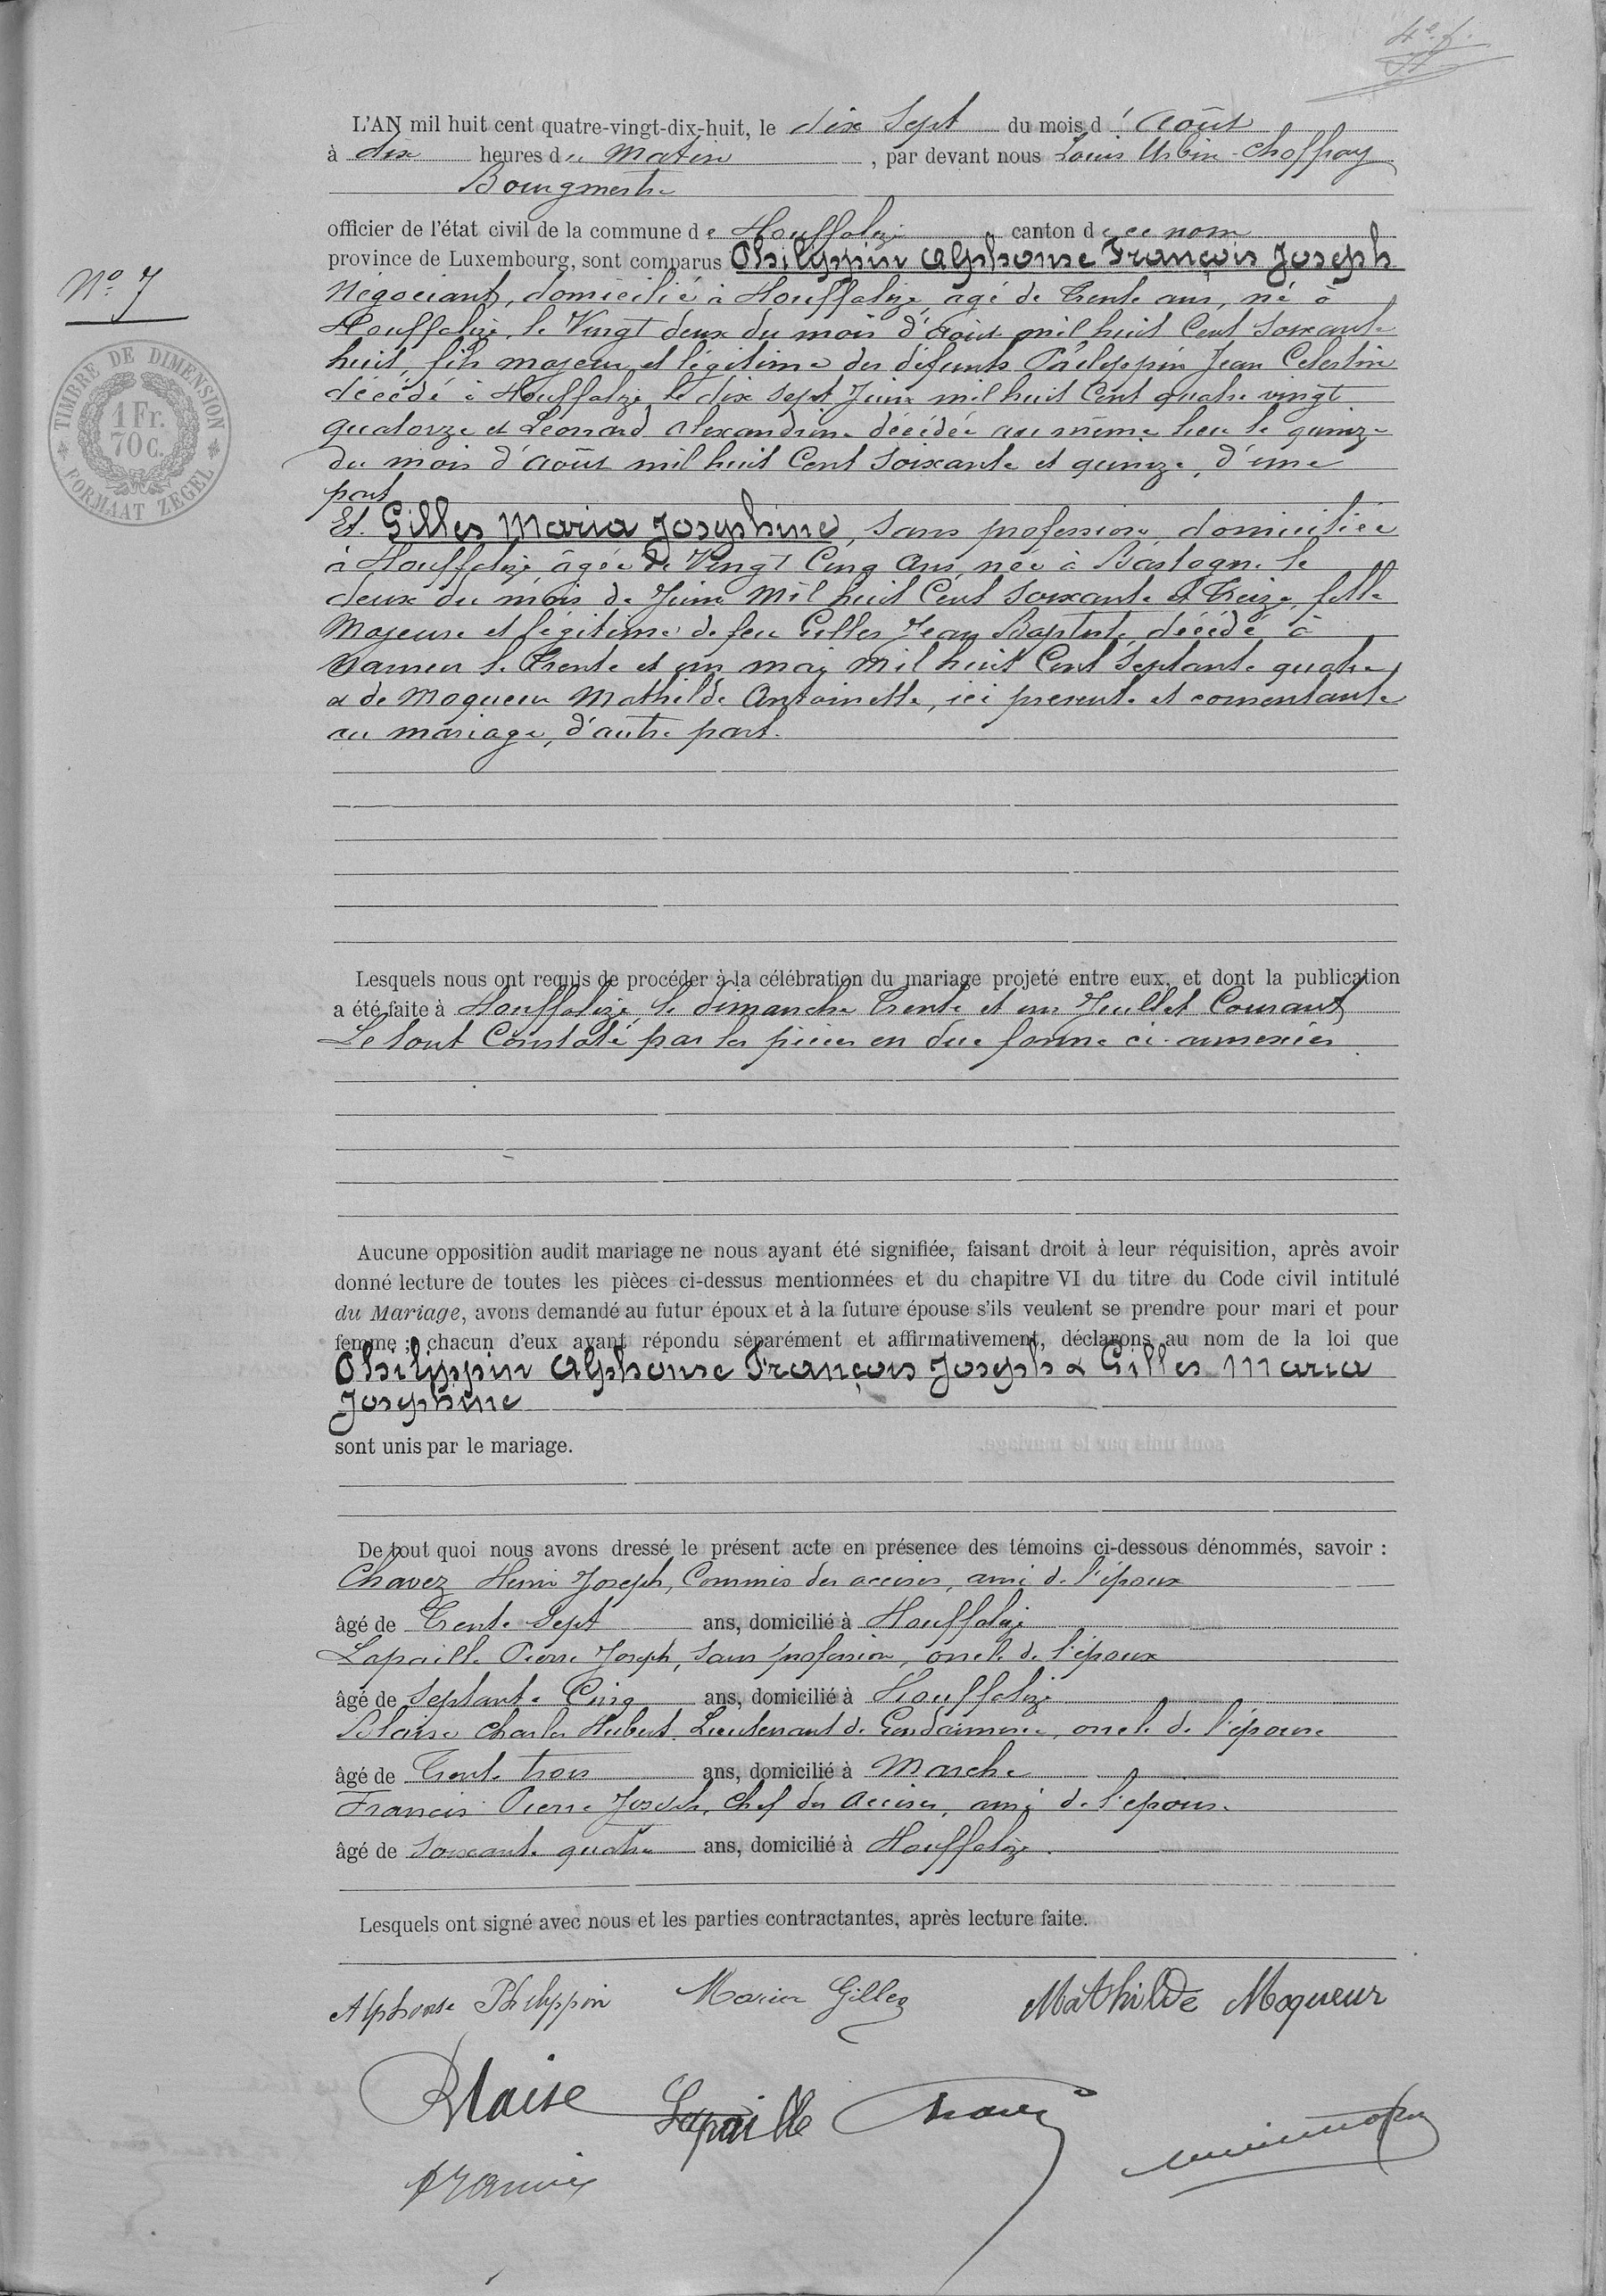 4e f.
L'AN mil huit cent quatre-vingt-dix-huit, le dix sept du mois d'Août
à dix heures du Matin, par devant nous Louis Urbin Choffray
Bourgmestre
officier de l'état civil de la commune de Houffalize canton de ce nom
province de Luxembourg, sont comparus Philippin Alphonse François Joseph
No 7
Négociant, domicilié à Houffalize, agé de Trente ans, né à
Houffalize, le Vingt deux du mois d'Août mil huit Cent soixante
huit, fils majeur et légitime des défunts Philippin Jean Celestin
décédé à Houffalize le dix sept Juin mil huit Cent quatre vingt
quatorze et Léonard Alexandrine décédée au même lieu le quinze
du mois d'Août mil huit Cent soixante et quinze, d'une
part
TIMBRE DE DIMENSION
1 Fr.
70 C.
FORMAAT ZEGEL
Et Gilles Maria Josephine, sans profession, domiciliée
à Houffalize âgée de Vingt Cinq Ans, née à Bastogne le
deux du mois de Juin Mil huit Cent soixante et Treize, fille
Majeure et légitime de feu Gilles Jean Baptiste, décédé à
Namur le Trente et un mai Mil huit Cent septante quatre
& de Moqueur Mathilde Antoinette, ici présente et consentante
au mariage, d'autre part.
Lesquels nous ont requis de procéder à la célébration du mariage projeté entre eux, et dont la publication
a été faite à Houffalize, le dimanche Trente et un Juillet Courant
Le tout Constaté par les pièces en due forme ci-annexées
Aucune opposition audit mariage ne nous ayant été signifiée, faisant droit à leur réquisition, après avoir
donné lecture de toutes les pièces ci-dessus mentionnées et du chapitre VI du titre du Code civil intitulé
du Mariage, avons demandé au futur époux et à la future épouse s'ils veulent se prendre pour mari et pour
femme ; chacun d'eux ayant répondu séparément et affirmativement, déclarons au nom de la loi que
Philippin Alphonse François Joseph & Gilles Maria
Josephine
sont unis par le mariage.
De tout quoi nous avons dressé le présent acte en présence des témoins ci-dessous dénommés, savoir :
Chavez Henri Joseph, Commis des accises, ami de l'époux
âgé de Trente sept ans, domicilié à Houffalize
Lapaille Pierre Joseph, sans profession, oncle de l'époux
âgé de septante Cinq ans, domicilié à Houffalize
Blaise Charles Hubert, Lieutenant de Gendarmerie, oncle de l'épouse
âgé de Trente trois ans, domicilié à Marche
Francis Pierre Joseph, Chef des Accises, ami de l'épouse
âgé de soixante quatre ans, domicilié à Houffalize.
Lesquels ont signé avec nous et les parties contractantes, après lecture faite.
Alphonse Philippin Maria Gilles Mathilde Moqueur
Blaise Lapaille Chavez
Francis